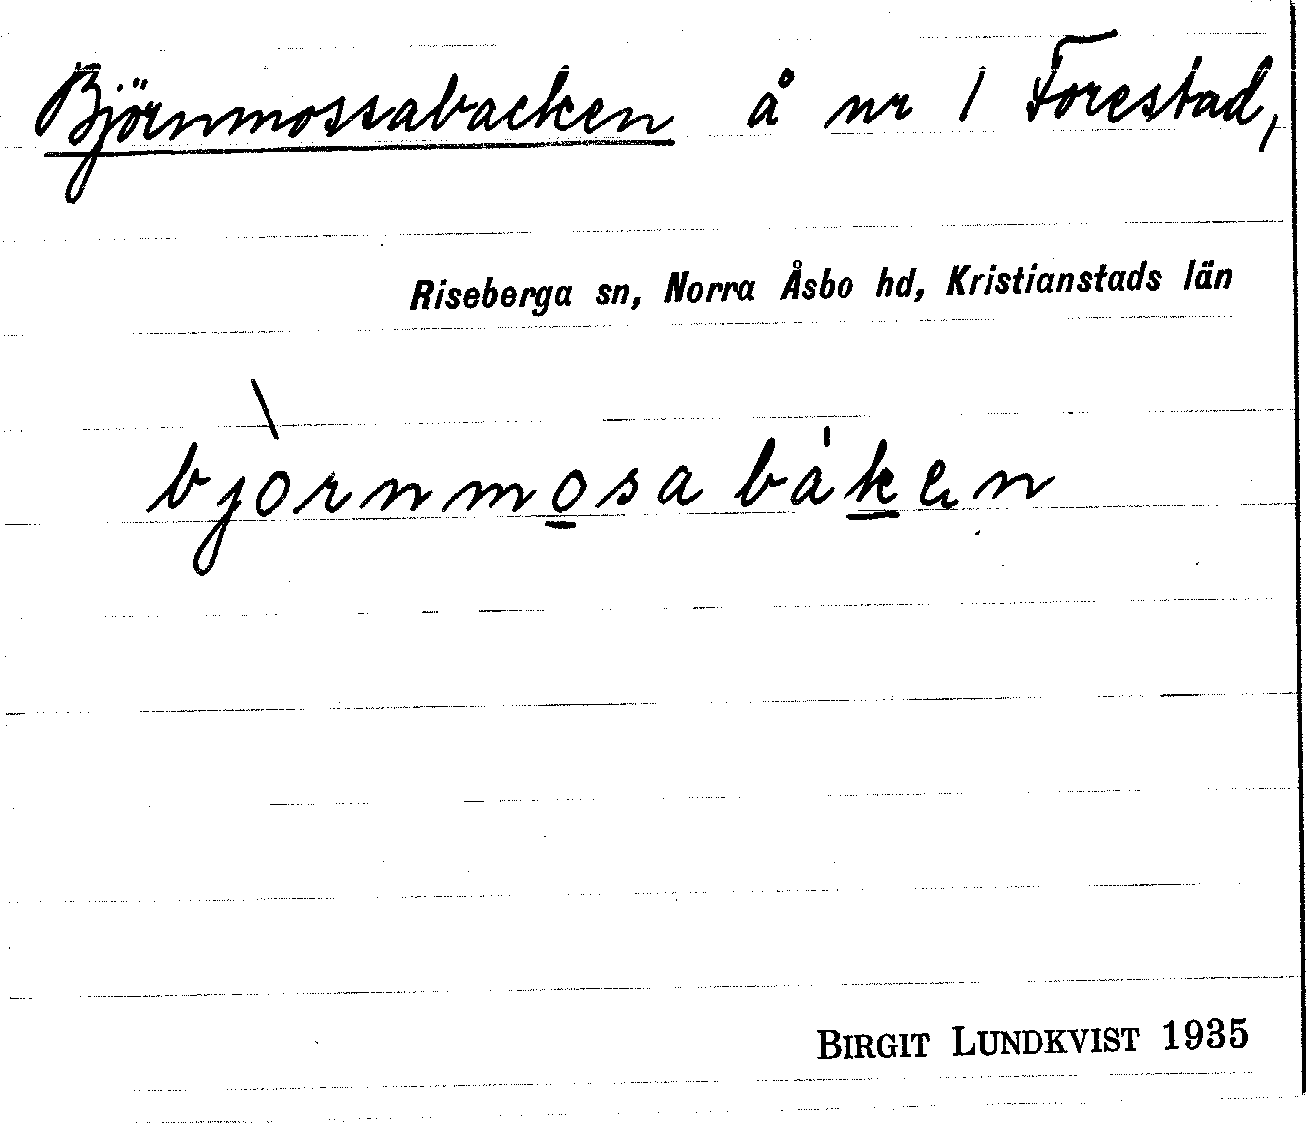 Björnmossabacken å nr 1 Forestad,
Riseberga sn, Norra Åsbo hd, Kristianstads län
bjòrnmo̲sa bák̲en
BIRGIT LUNDKVIST 1935